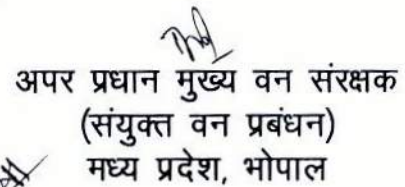 अपर प्रधान मुख्य वन संरक्षक
(संयुक्त वन प्रबंधन)
मध्य प्रदेश, भोपाल